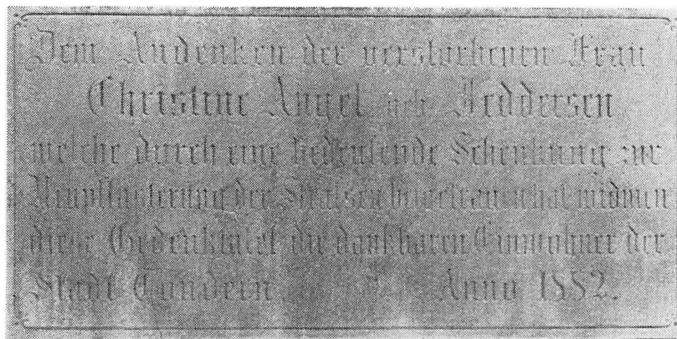 Dem Andenken der verstorbenen Frau
Christine Angel geb. Feddersen
welche durch eine bedeutende Schenkung zur
Neupflasterung der Straßen beigetragen hat widmen
diese Gedenktafel die dankbaren Einwohner der
Stadt Tondern. Anno 1882.